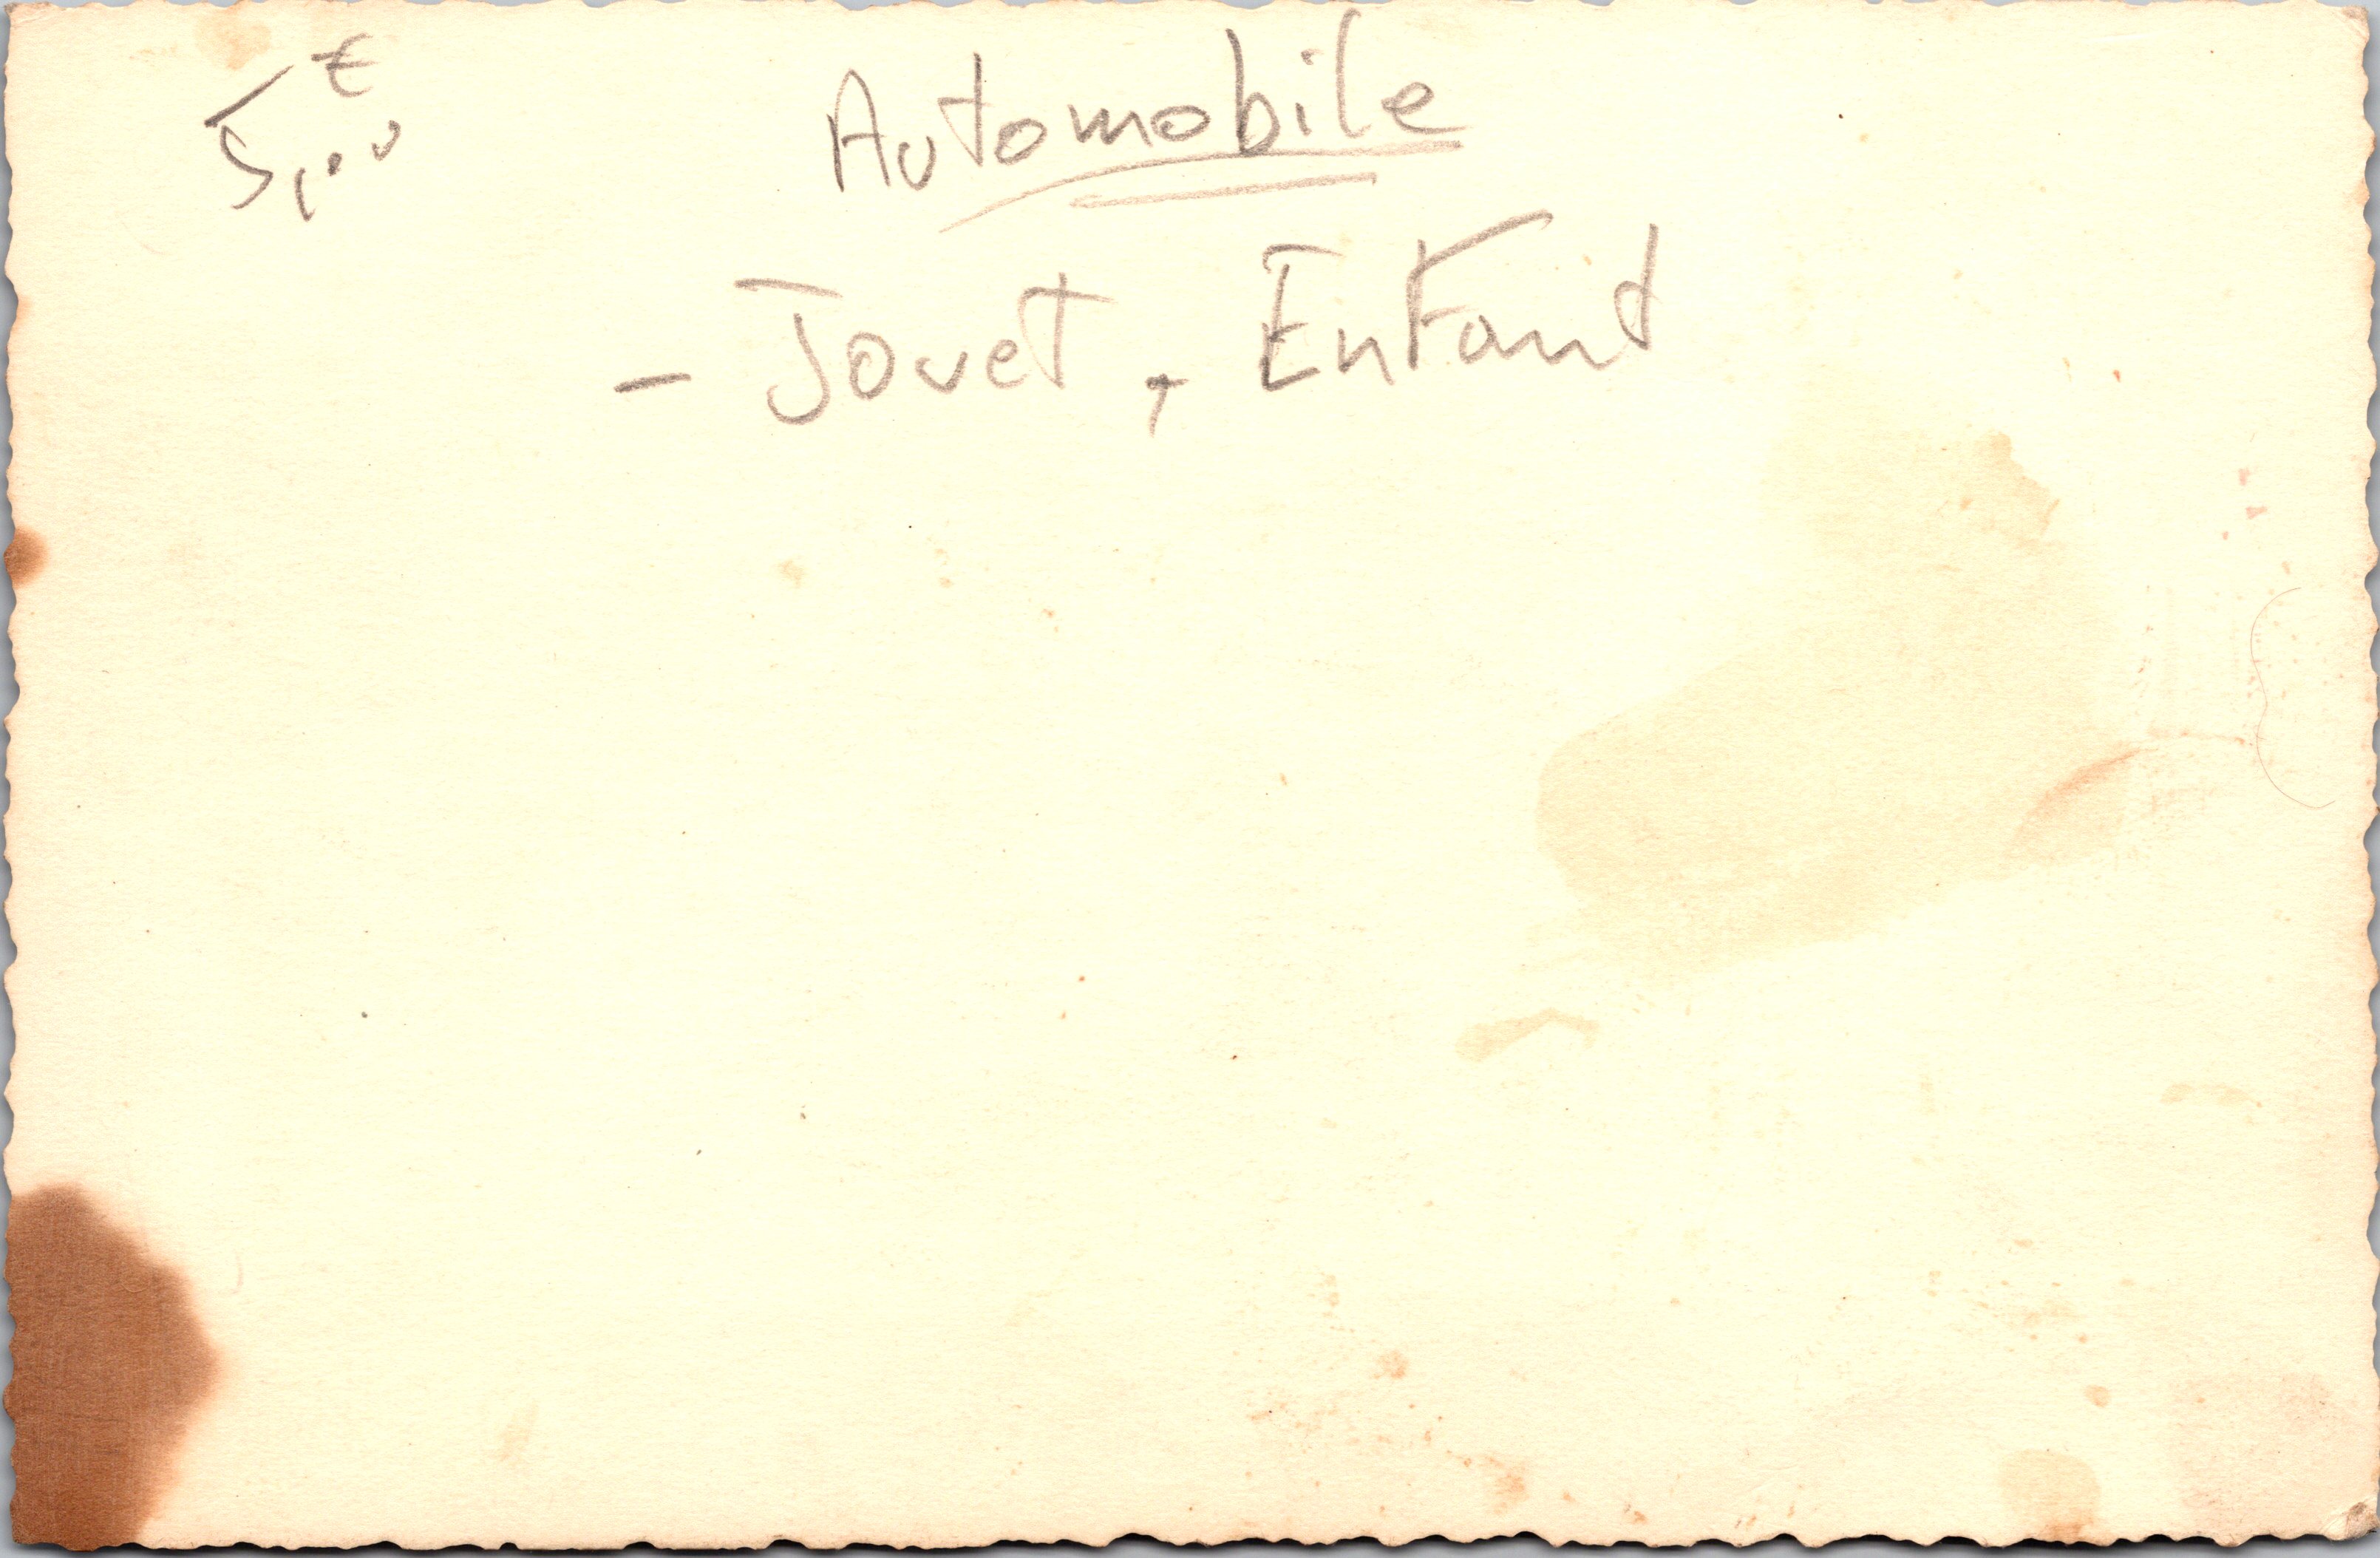 5,00 €
Automobile
- Jouet, Enfant